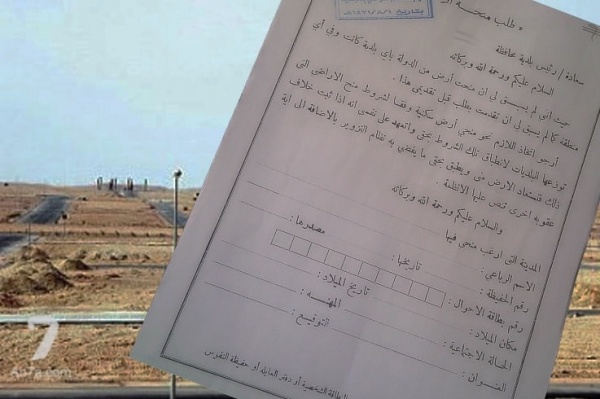 • طلب منحة
بتاريخ
سعادة / رئيس بلدية محافظة
السلام عليكم ورحمة الله وبركاته
حيث أنى لم يسبق لي ان منحت أرض من الدولة باي بلدية كانت وفي أي
منطقة كما لم يسبق لي ان تقدمت بطلب قبل تقديمي هذا .
أرجو اتخاذ اللازم نحو منحي أرض سكنية وفقا لشروط منح الاراضي التي
توزعها البلديات لانطباق تلك الشروط بحقي واتعهد على نفسي انه اذا ثبت خلاف
ذلك فتستعاد الارض مني ويطبق بحقي ما يقضي به نظام التزوير بالاضافة الى اية
عقوبة اخرى تنص عليها الانظمة .
والسلام عليكم ورحمة الله وبركاته
المدينة التى ارغب منحى فيها
الاسم الرباعي :
رقم الحفيظة : تاريخها : مصدرها :
رقم بطاقة الاحوال :
مكان الميلاد : تاريخ الميلاد :
الحالة الاجتماعية : المهنة :
العنوان : التوقيع :
البطاقة الشخصية أو دفتر العائلة أو حفيظة النفوس
7
An7a.com